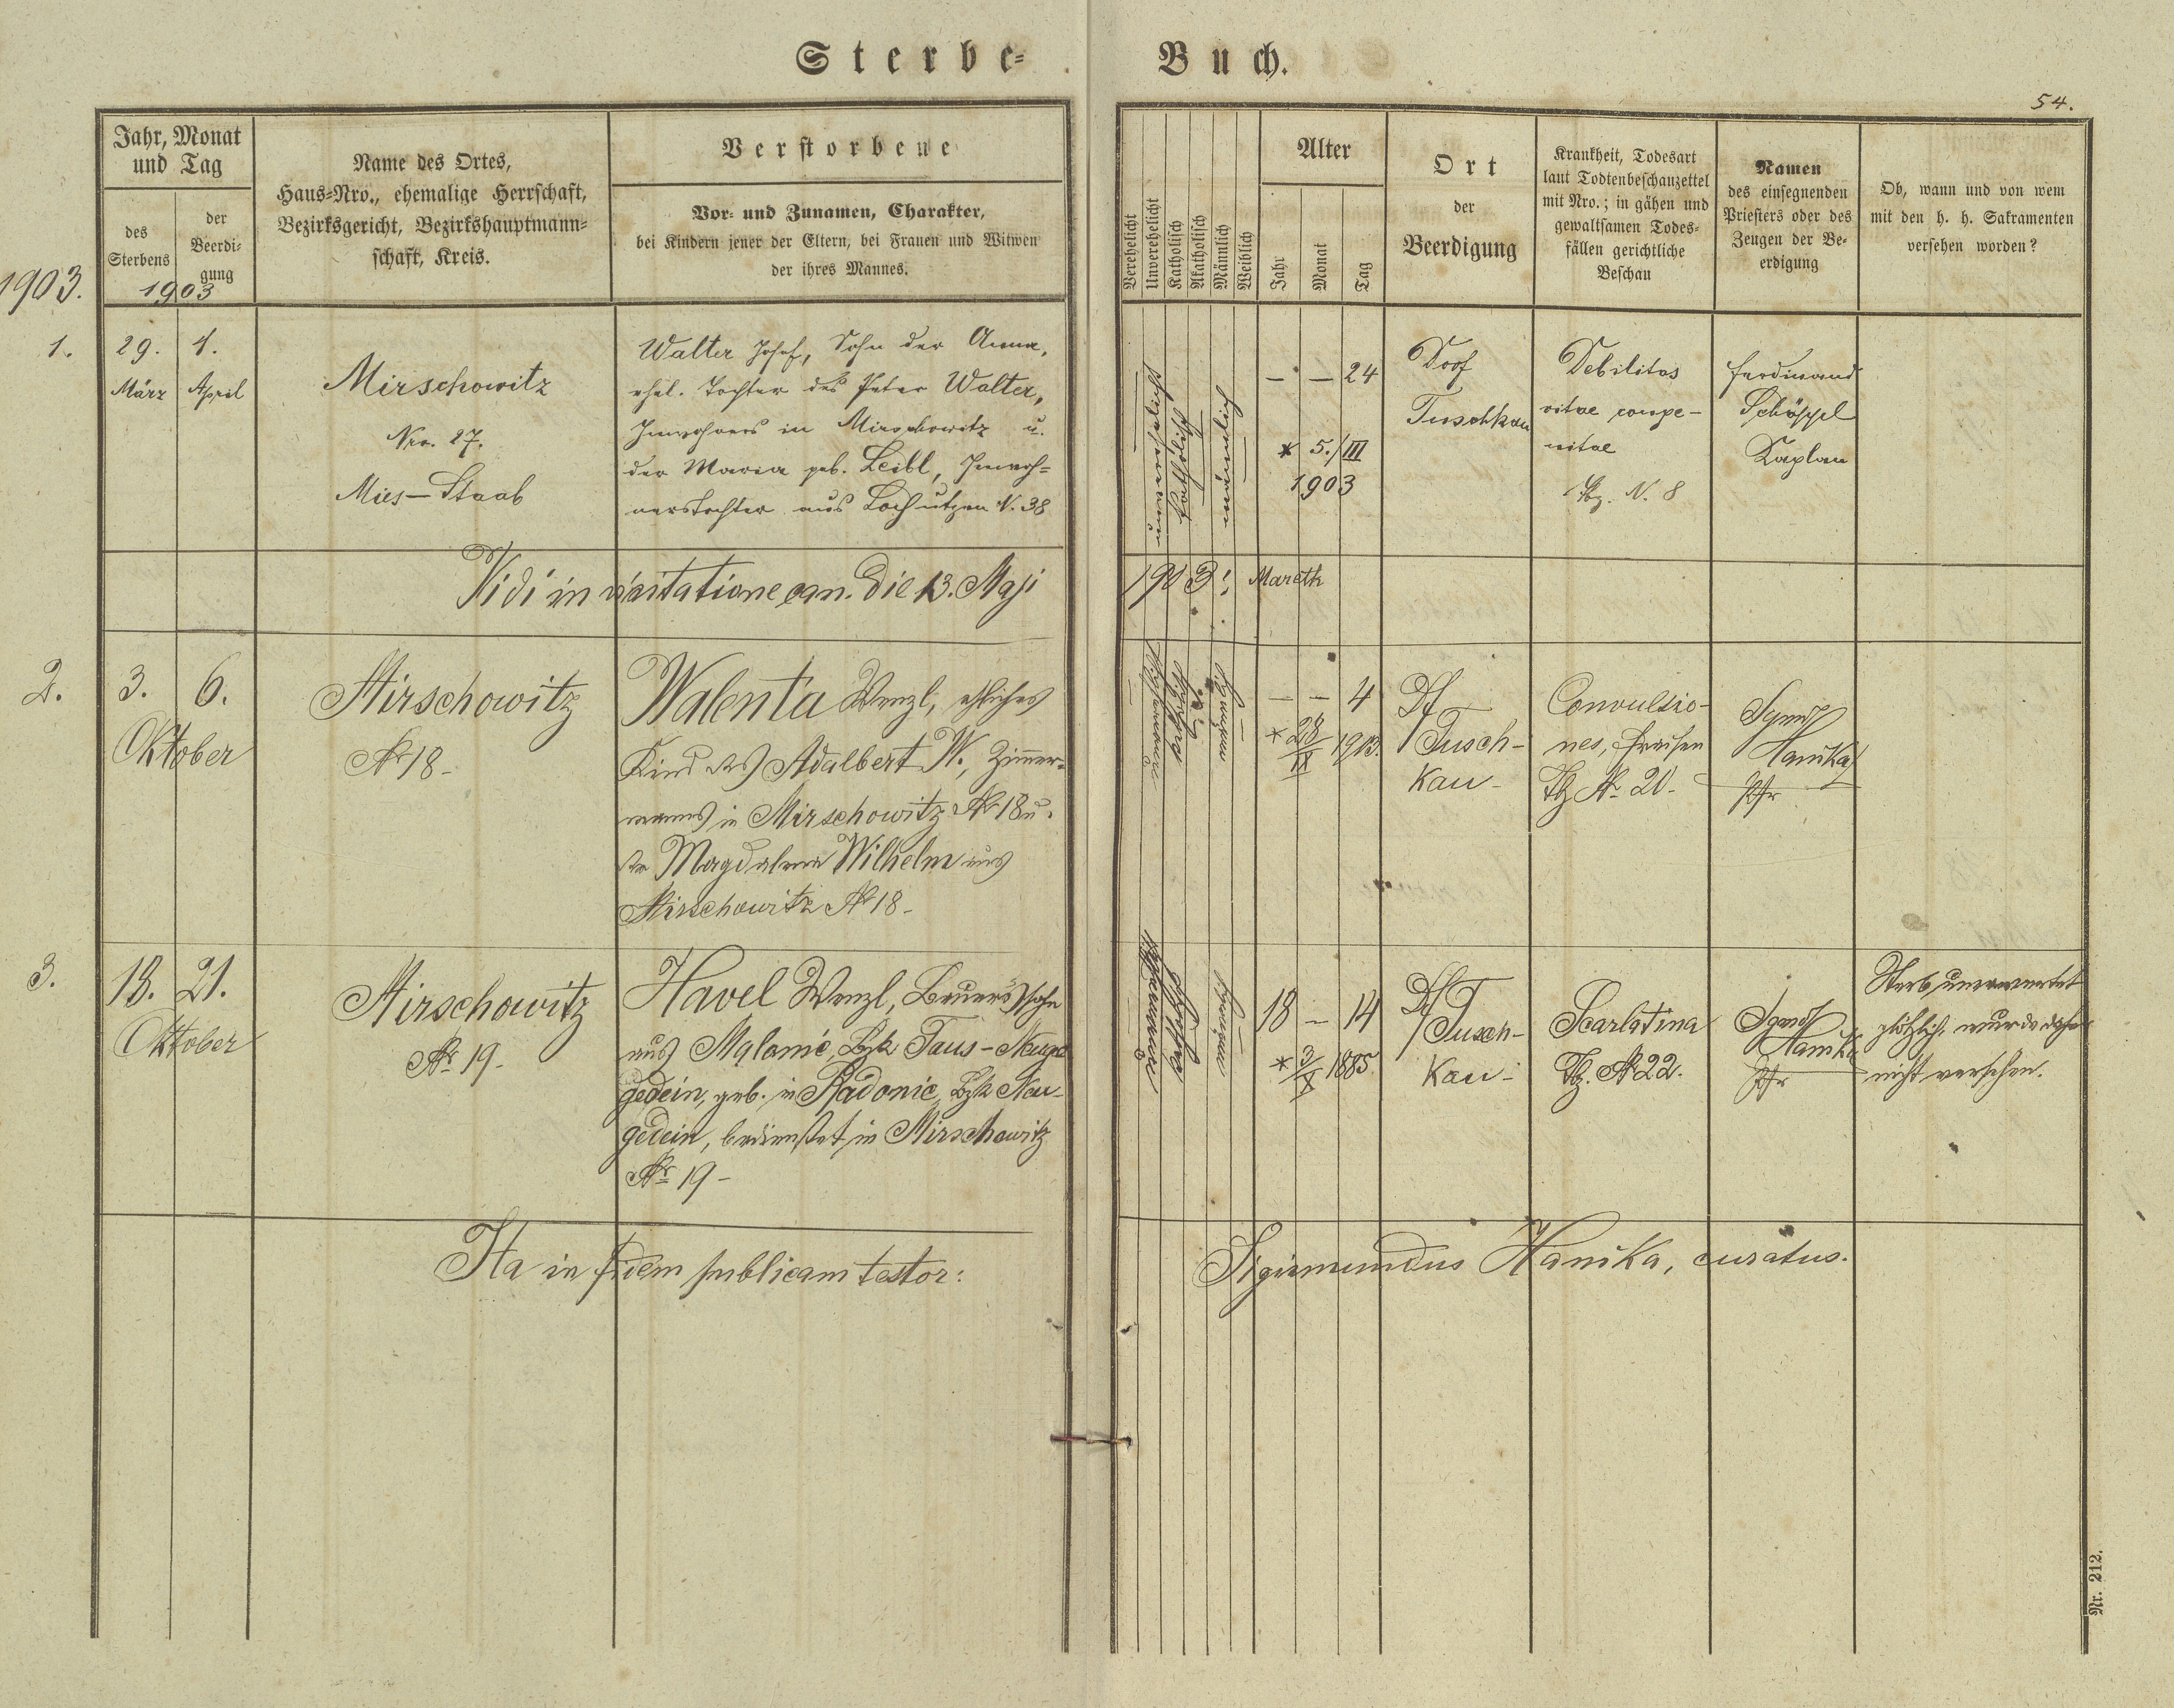 Sterbe-
Buch.
54.
Jahr, Monat
und Tag
des
Sterbens
der
Beerdi-
gung
1903
1903.
Name des Ortes,
Haus-Nro., ehemalige Herrschaft,
Bezirksgericht, Bezirkshauptmann-
schaft, Kreis.
Verstorbene
Vor- und Zunamen, Charakter,
bei Kindern jener der Eltern, bei Frauen und Witwen
der ihres Mannes.
Verehelicht
Unverehelicht
Katholisch
Akatholisch
Männlich
Weiblich
Alter
Jahr
Monat
Tag
Ort
der
Beerdigung
Krankheit, Todesart
laut Todtenbeschauzettel
mit Nro.; in gähen und
gewaltsamen Todes-
fällen gerichtliche
Beschau
Namen
des einsegnenden
Priesters oder des
Zeugen der Be-
erdigung
Ob, wann und von wem
mit den h. h. Sakramenten
versehen worden?
1.
29.
März
1.
April
Mirschowitz
Nro. 27.
Mies-Staab
Walter Josef, Sohn der Anna,
ehel. Tochter des Peter Walter,
Inwohners in Mirschowitz u.
der Maria geb. Leibl, Inwoh-
nerstochter aus Lochutzen N. 38
unverehelicht
katholisch
männlich
— — 24
* 5./III
1903
Dorf
Tuschkau
Debilitas
vitae conge-
nitae
Tbz. N. 8
Ferdinand
Schöppl
Kaplan
Vidi in visitatione can. die 13. Maji
1903: Mareth
2.
3.
6.
Oktober
Mirschowitz
Nr 18-
Walenta Wenzl, eheliches
Kind des Adalbert W., Zimmer-
manns in Mirschowitz Nr 18 u.
der Magdalena Wilhelm aus
Mirschowitz Nr 18-
— — 4
* 28/IX 1903.
Df
Tusch-
kau-
Convulsio-
nes, Fraisen
Tbz Nr. 20.
Sgmd
Hanika
Pfr
3.
18.
21.
Oktober
Mirschowitz
Nr 19-
Havel Wenzl, Bauerssohn
aus Mlalonic, Bzk Taus-Neuge
gedein, geb. in Radonic, Bzk Neu-
gedein, bedienstet in Mirschowitz
Nr 19-
18 — 14
* 3/X 1885.
Df
Tusch-
kau-
Scarlatina
Tbz. Nr 22.
Sgmd
Hanika
Pfr
Starb unerwartet
plötzlich, wurde daher
nicht versehen.
Ita in fidem publicam testor:
Sigismundus Hanika, curatus.
Nr. 212.